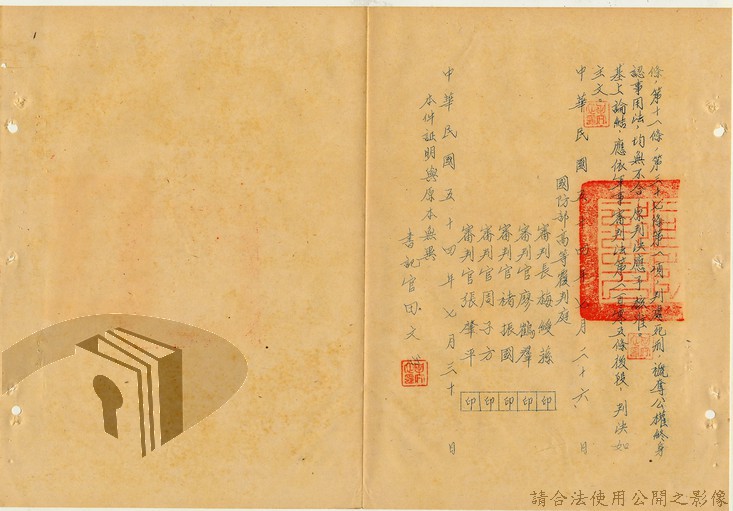 條、第十一條、第三十七條第一項,判處死刑,褫奪公權終身
認事用法,均無不合,原判決應予核准。
基上論結,應依軍事審判法第一百零五條後段,判決如
主文。
中華民國五十四年七月二十六日
國防部高等覆判庭
審判長梅綬蓀
審判官廖鶴羣
審判官褚振國
審判官周子方
審判官張肇平
印印印印印
中華民國五十四年七月三十日
本件証明與原本無異
書記官田文
1
請合法使用公開之影像